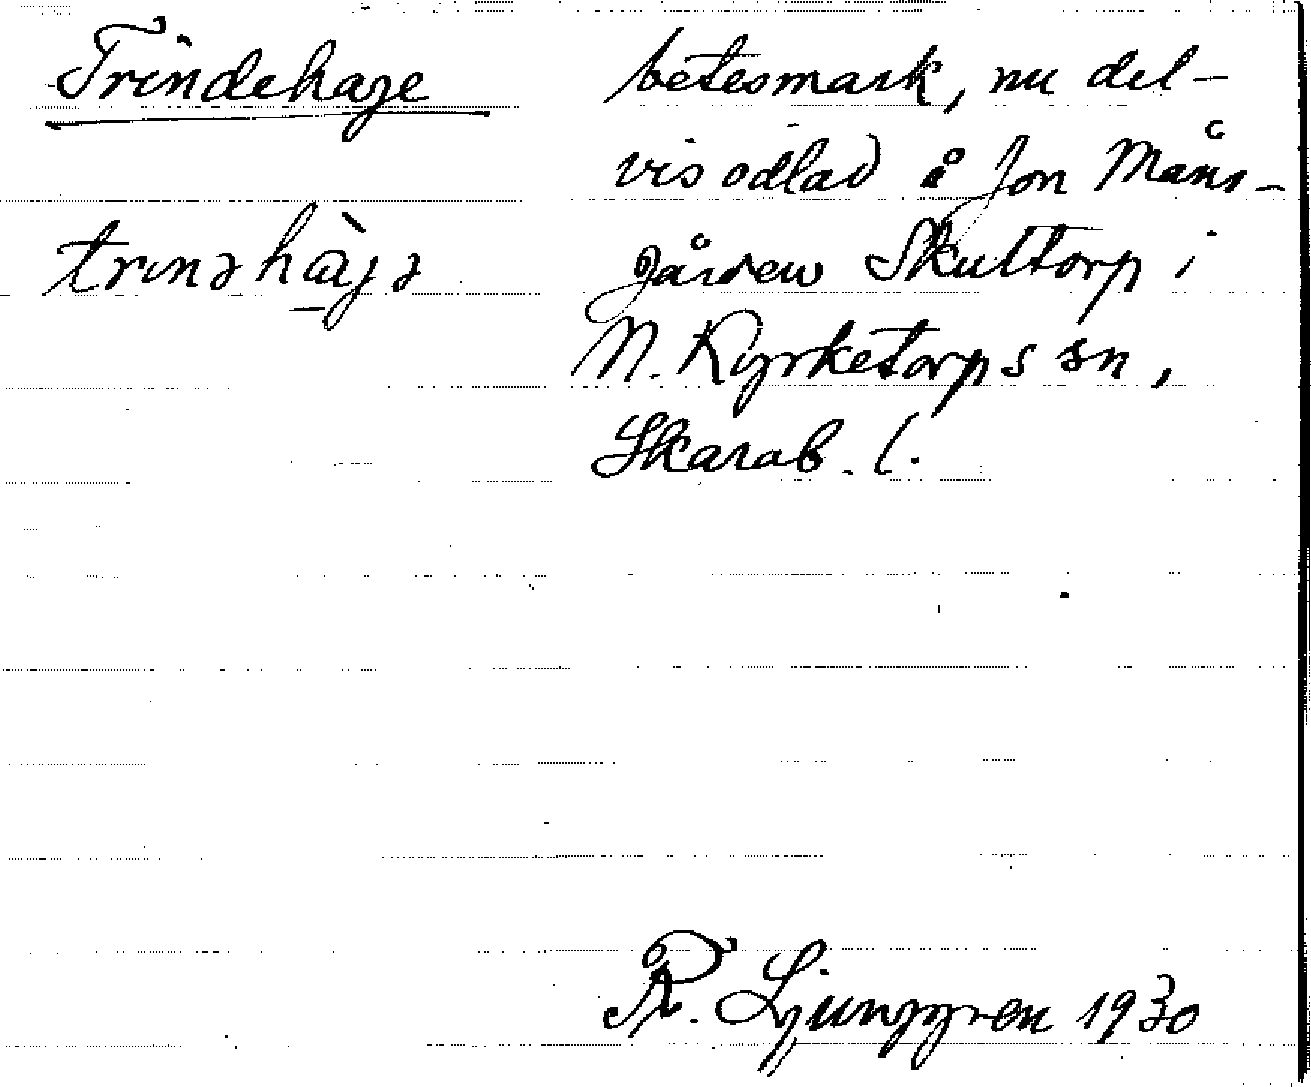 Trindehage
trinəhàgə
betesmark, nu del-
vis odlad å Jon Måns-
gården Skultorp i
N. Kyrketorps sn,
Skarab. l.
R. Ljunggren 1930